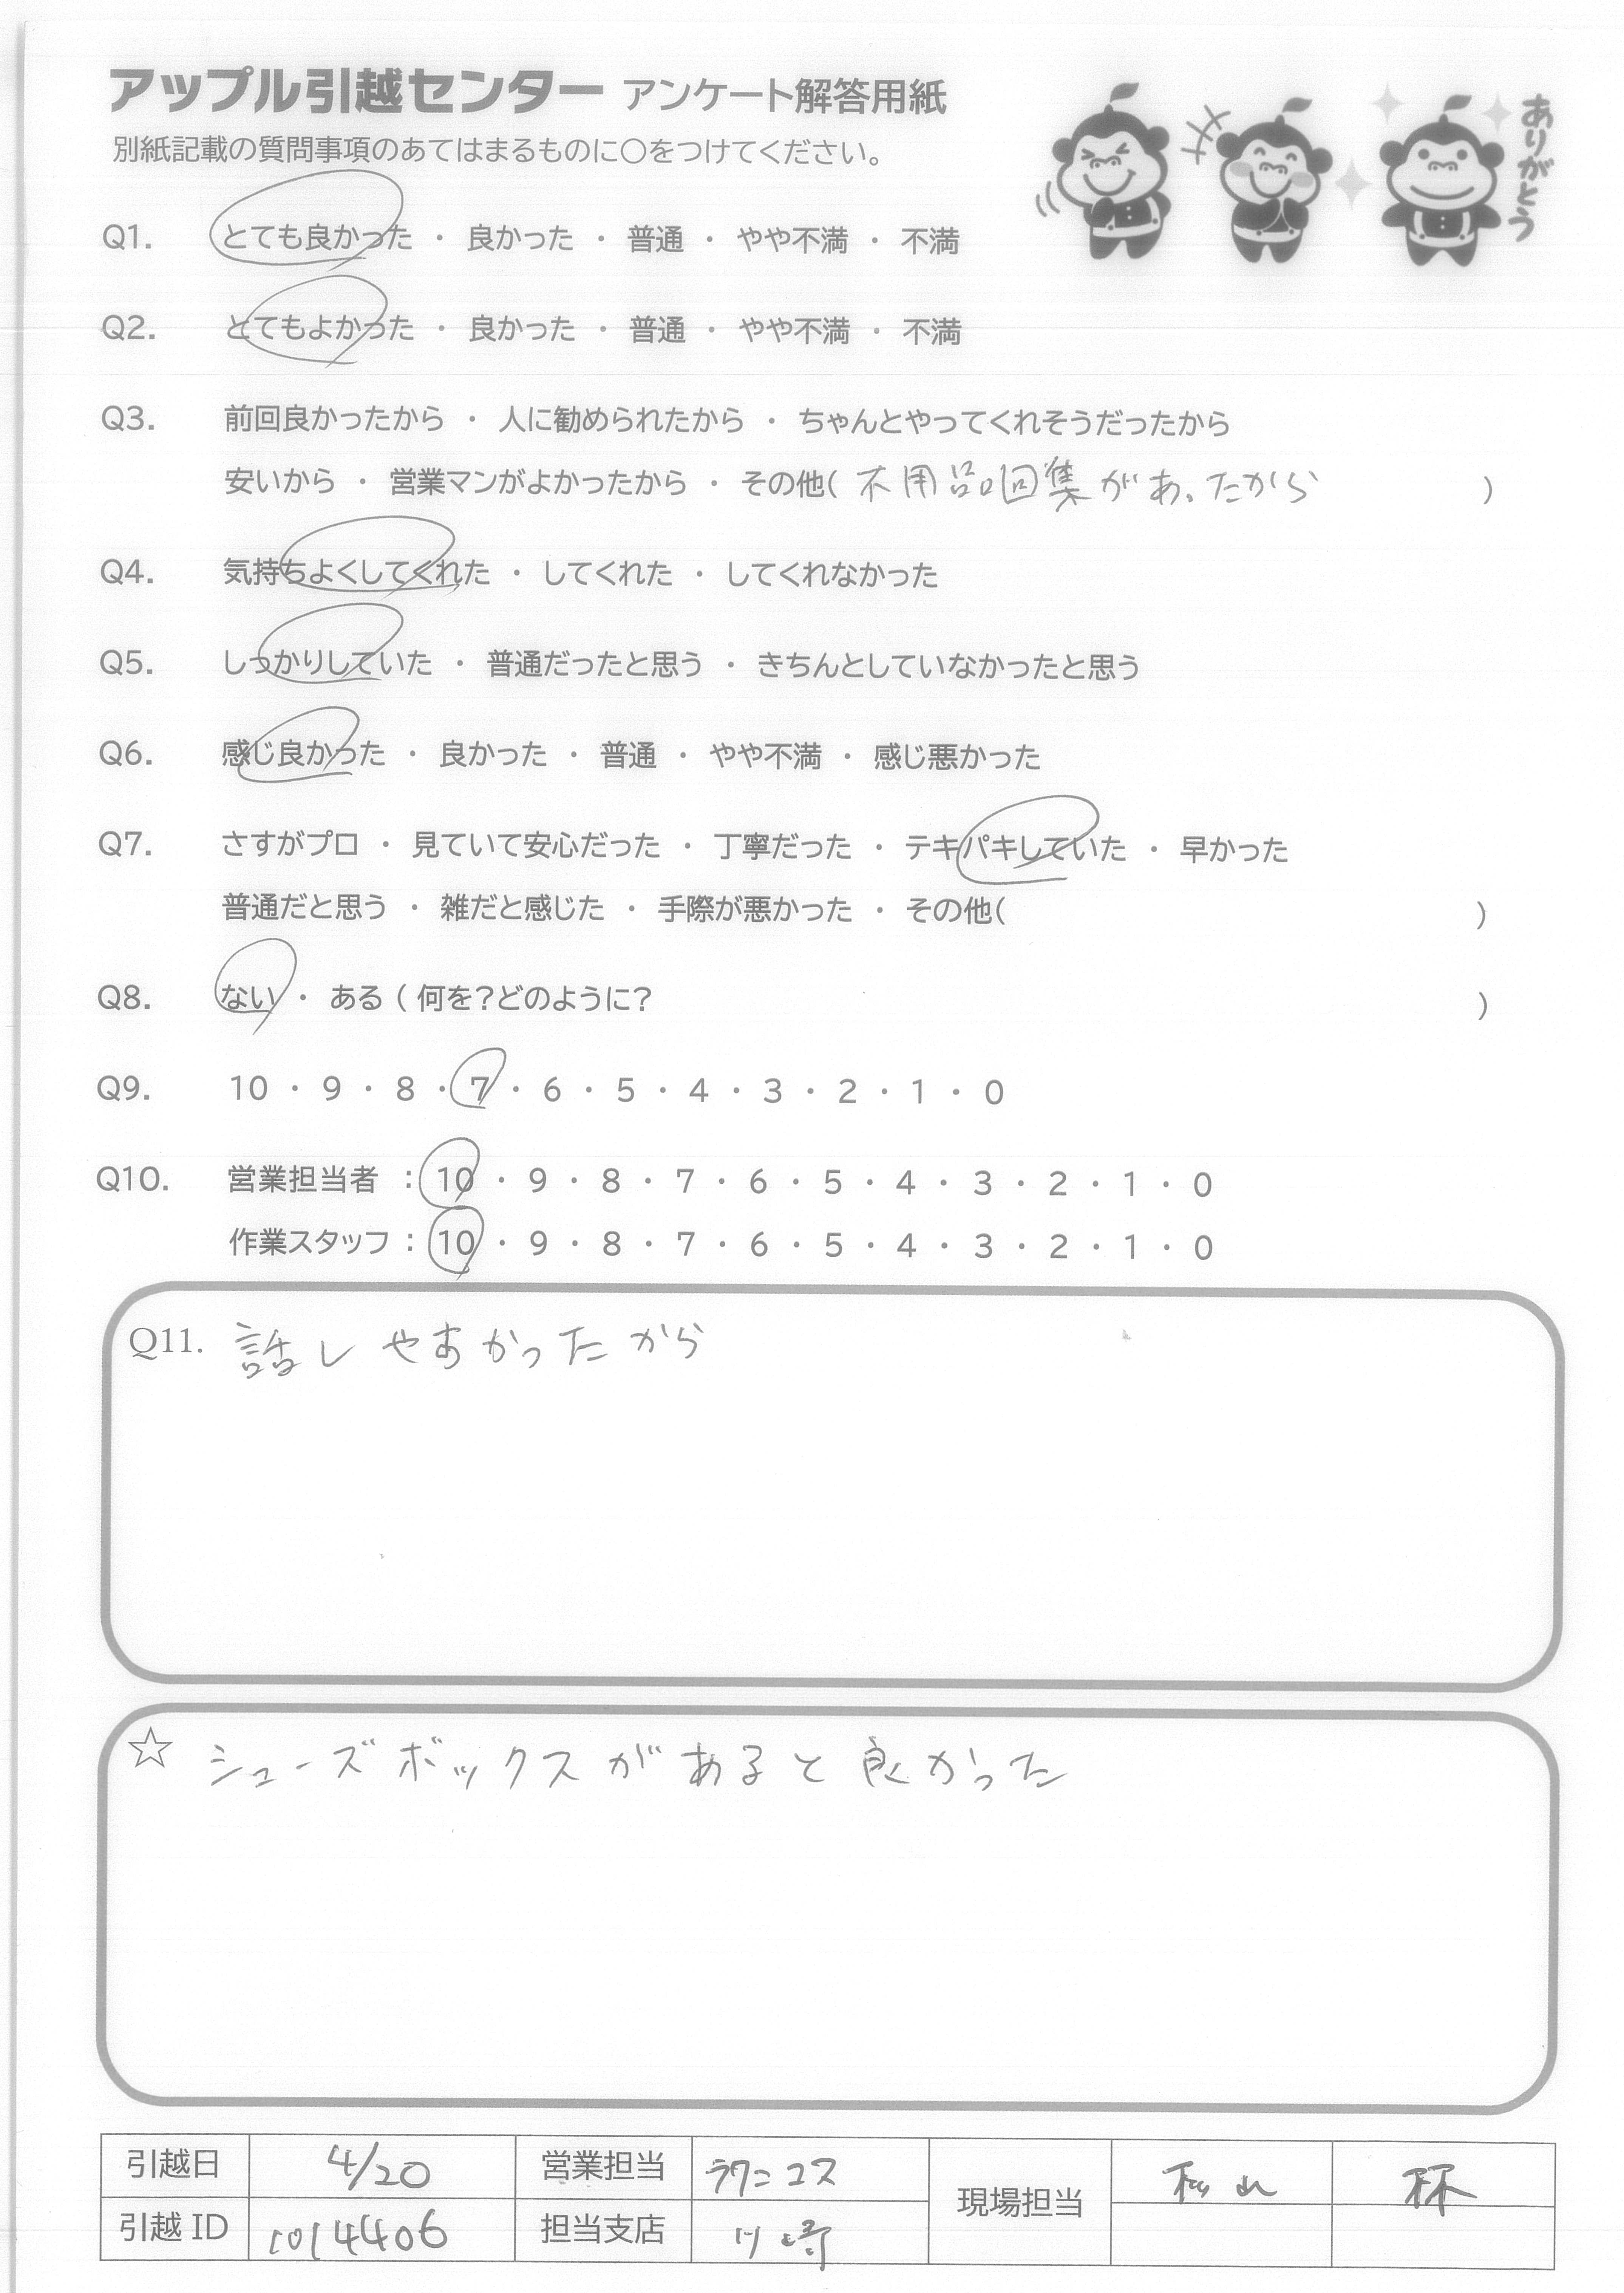 アップル引越センター アンケート解答用紙
別紙記載の質問事項のあてはまるものに○をつけてください。
ありがとう
Q1. とても良かった ・ 良かった ・ 普通 ・ やや不満 ・ 不満
Q2. とてもよかった ・ 良かった ・ 普通 ・ やや不満 ・ 不満
Q3. 前回良かったから ・ 人に勧められたから ・ ちゃんとやってくれそうだったから
安いから ・ 営業マンがよかったから ・ その他( 不用品回集があったから )
Q4. 気持ちよくしてくれた ・ してくれた ・ してくれなかった
Q5. しっかりしていた ・ 普通だったと思う ・ きちんとしていなかったと思う
Q6. 感じ良かった ・ 良かった ・ 普通 ・ やや不満 ・ 感じ悪かった
Q7. さすがプロ ・ 見ていて安心だった ・ 丁寧だった ・ テキパキしていた ・ 早かった
普通だと思う ・ 雑だと感じた ・ 手際が悪かった ・ その他( )
Q8. ない ・ ある ( 何を?どのように? )
Q9. 10 ・ 9 ・ 8 ・ 7 ・ 6 ・ 5 ・ 4 ・ 3 ・ 2 ・ 1 ・ 0
Q10. 営業担当者 : 10 ・ 9 ・ 8 ・ 7 ・ 6 ・ 5 ・ 4 ・ 3 ・ 2 ・ 1 ・ 0
作業スタッフ : 10 ・ 9 ・ 8 ・ 7 ・ 6 ・ 5 ・ 4 ・ 3 ・ 2 ・ 1 ・ 0
Q11. 話しやすかったから
☆ シューズボックスがあると良かった
引越日 4/20 営業担当 ラクニコス 現場担当 林
引越 ID 1014406 担当支店 川崎